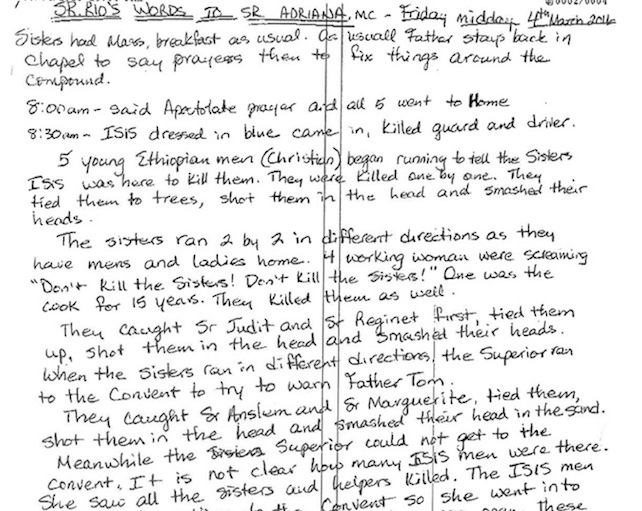 SR.RIO'S WORDS TO SR ADRIANA, MC - Friday midday 4th March 2016
Sisters had Mass, breakfast as usual. As usuall Father stays back in
Chapel to say prayers then to fix things around the
Compound.
8:00am - said Apostolate prayer and all 5 went to Home
8:30am - ISIS dressed in blue came in, killed guard and driver.
5 young Ethiopian men (Christian) began running to tell the Sisters
ISIS was here to kill them. They were killed one by one. They
tied them to trees, shot them in the head and smashed their
heads.
The sisters ran 2 by 2 in different directions as they
have mens and ladies home. 4 working woman were screaming
"Don't kill the Sisters! Don't kill the Sisters!" One was the
cook for 15 years. They killed them as well.
They caught Sr Judit and Sr Reginet first, tied them
up, shot them in the head and smashed their heads.
When the Sisters ran in different directions, the Superior ran
to the Convent to try to warn Father Tom.
They caught Sr Anslem and Sr Marguerite, tied them,
shot them in the head and smashed their head in the sand.
Meanwhile the Superior could not get to the
convent. It is not clear how many ISIS men were there.
She saw all the Sisters and helpers killed. The ISIS men
to the Convent so she went into
these